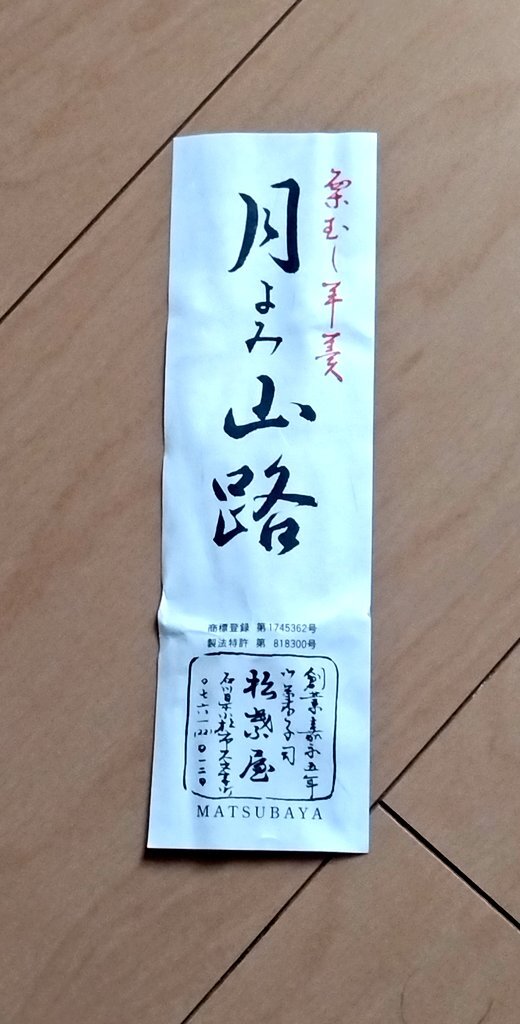 栗むし羊羹
月よみ山路
商標登録 第1745362号
製法特許 第 818300号
創業嘉永五年
御菓子司
松葉屋
石川県小松市大文字町
MATSUBAYA